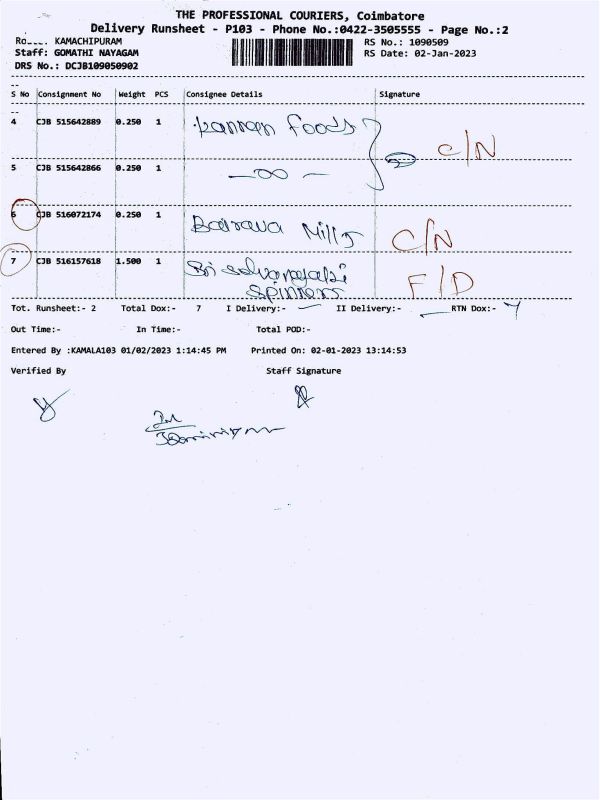 THE PROFESSIONAL COURIERS, Coimbatore
Delivery Runsheet - P103 - Phone No.:0422-3505555 - Page No.:2
KAMACHIPURAM
RS No.: 1090509
Staff: GOMATHI NAYAGAM
RS Date: 02-Jan-2023
DRS No.: DCJB109050902
S No Consignment No Weight PCS Consignee Details Signature
4 CJB 515642889 0.250 1 Kannan Foods
C/N
5 CJB 515642866 0.250 1 —oo—
6 CJB 516072174 0.250 1 Bairava Mills C/N
7 CJB 516157618 1.500 1 Sri selvanayaki F/D
spinners
Tot. Runsheet:- 2 Total Dox:- 7 I Delivery:- II Delivery:- RTN Dox:-
Out Time:- In Time:- Total POD:-
Entered By :KAMALA103 01/02/2023 1:14:45 PM Printed On: 02-01-2023 13:14:53
Verified By Staff Signature